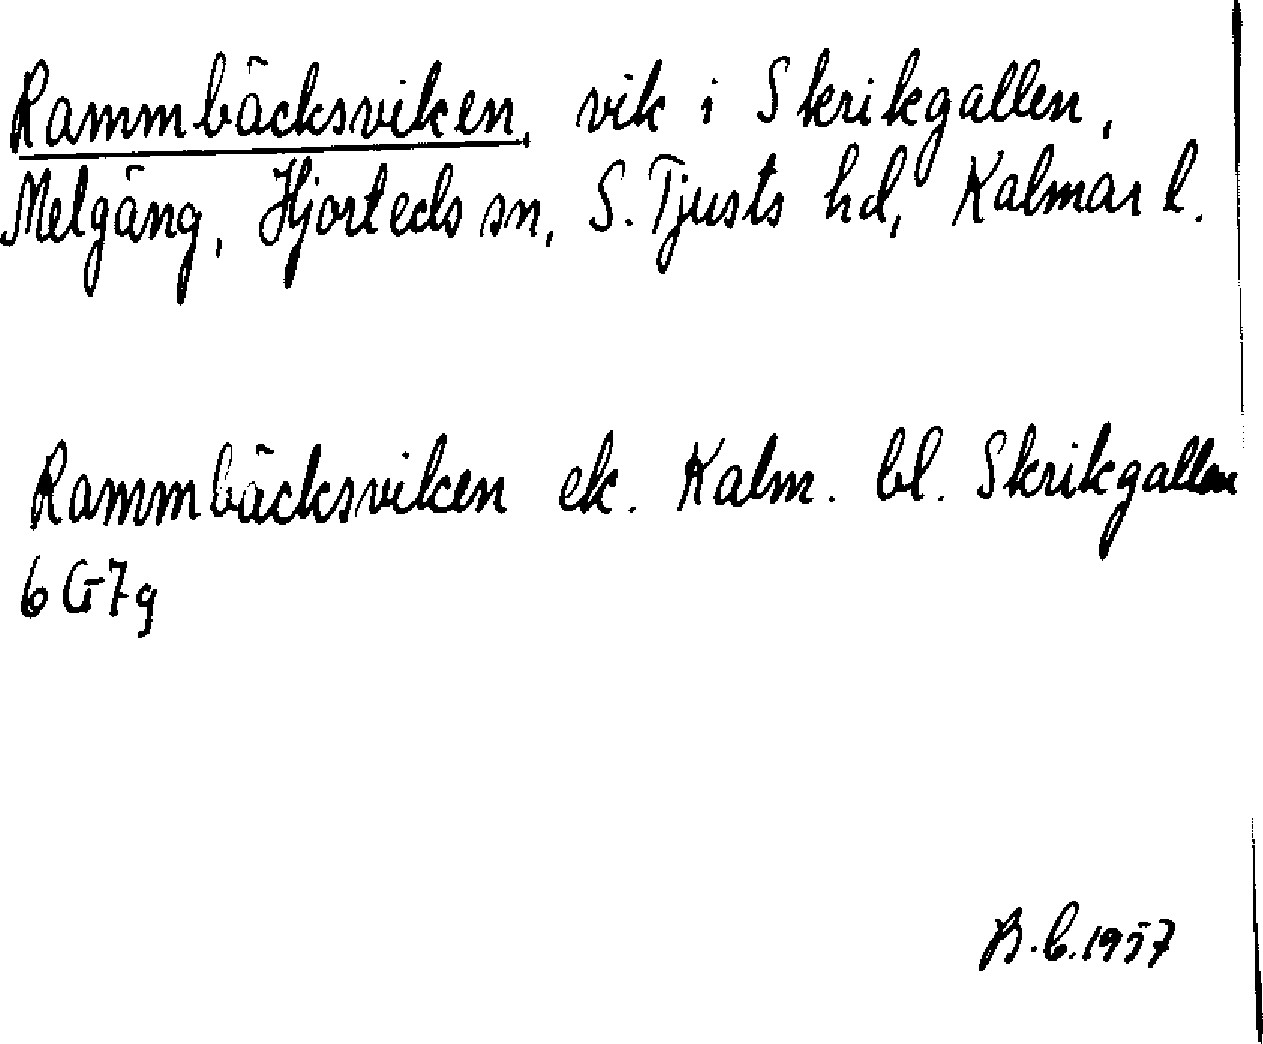 Rammbäcksviken, vik i Skrikgallen,
Melgäng, Hjorteds sn, S. Tjusts hd, Kalmar l.
Rammbäcksviken ek. Kalm. bl. Skrikgallen
6 G 7g
B.C. 1957